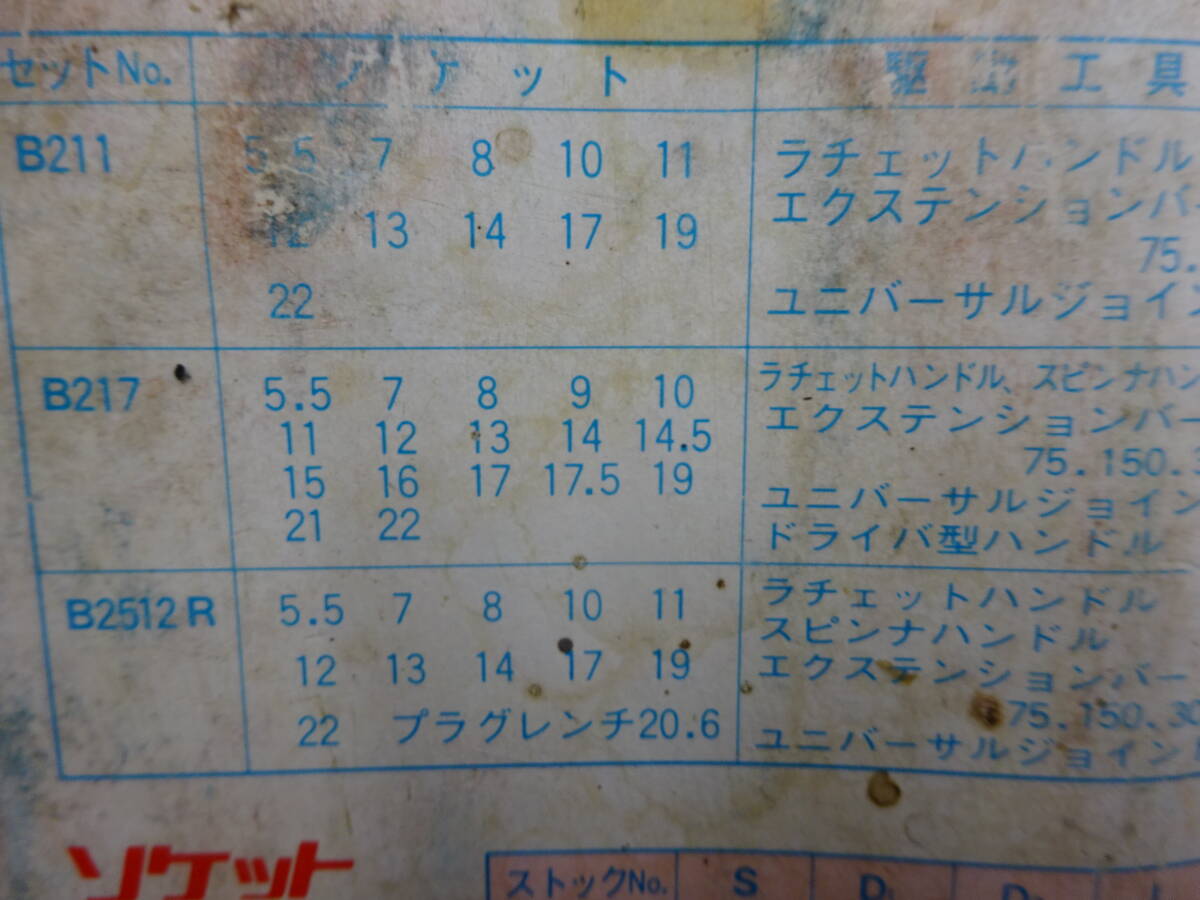 セットNo. ソケット 駆動工具
B211 5.5 7 8 10 11 ラチェットハンドル
12 13 14 17 19 エクステンションバー
75.
22 ユニバーサルジョイン
B217 5.5 7 8 9 10 ラチェットハンドル、スピンナハン
11 12 13 14 14.5 エクステンションバー
75.150.
15 16 17 17.5 19 ユニバーサルジョイン
21 22 ドライバ型ハンドル
B2512R 5.5 7 8 10 11 ラチェットハンドル
スピンナハンドル
12 13 14 17 19 エクステンションバー
75.150.30
22 プラグレンチ20.6 ユニバーサルジョイント
ソケット
ストックNo. S D₁